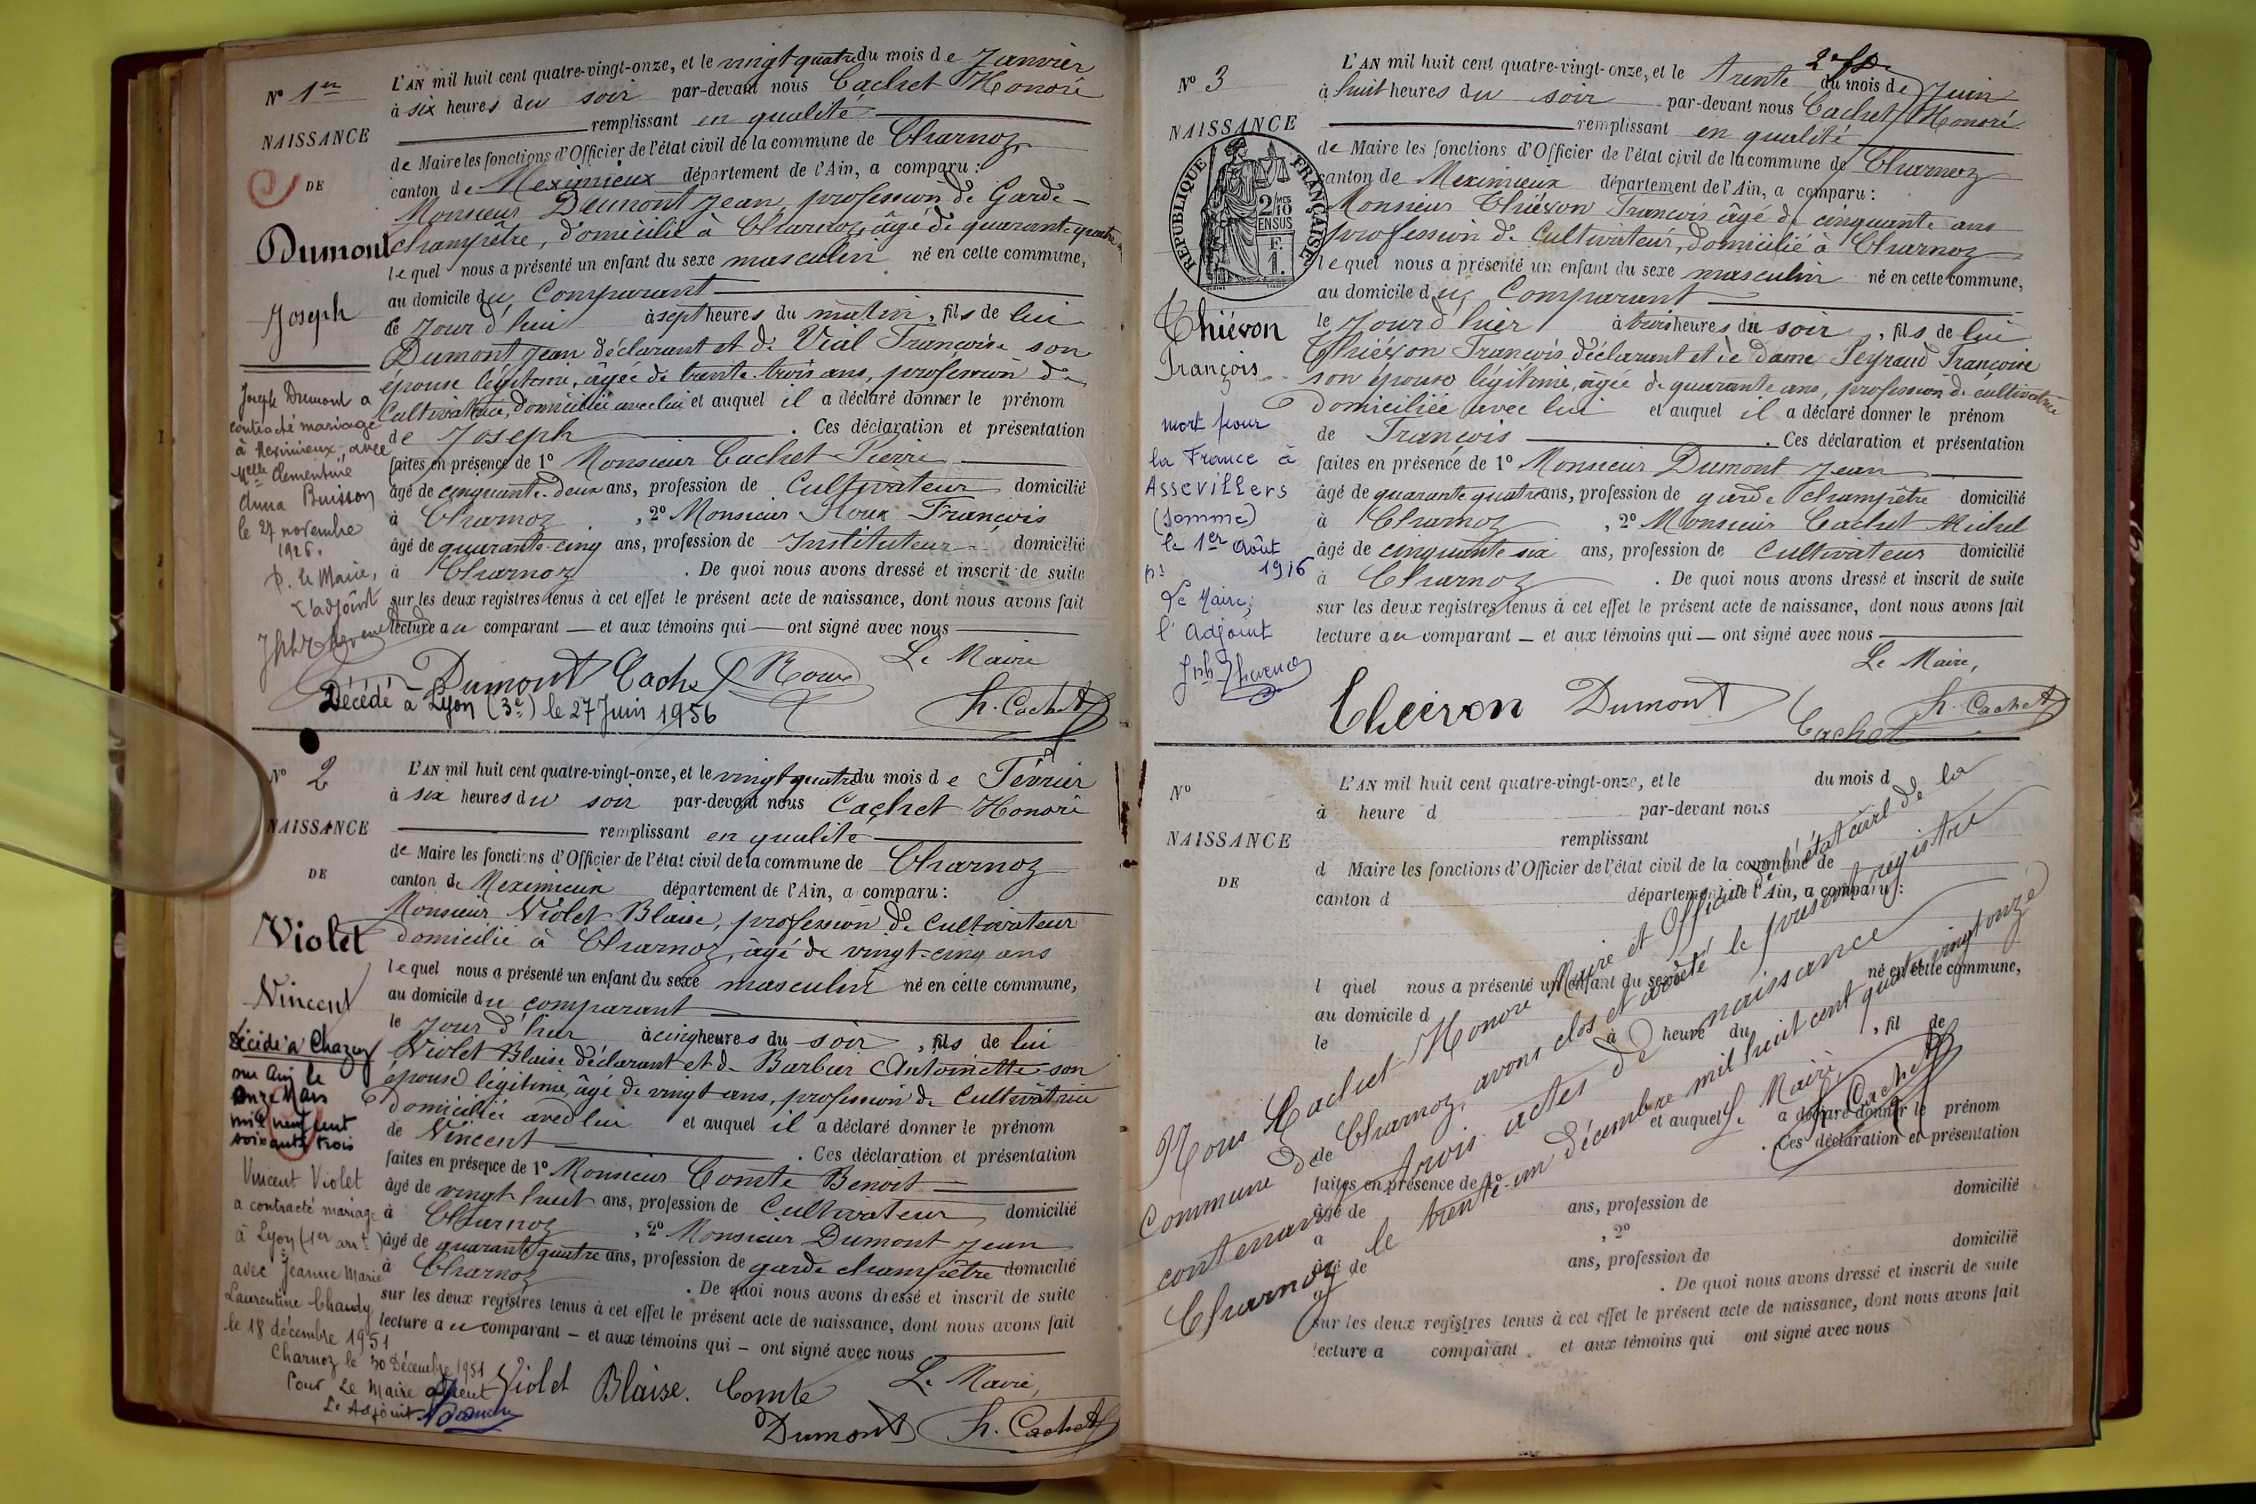 N° 1er
NAISSANCE
DE
Dumont
Joseph
Joseph Dumont a
contracté mariage
à Meximieux, avec
Melle Clementine
Anna Buisson
le 27 novembre
1926.
P. le Maire,
L'adjoint
L'AN mil huit cent quatre-vingt-onze, et le vingt quatre du mois de Janvier
à six heures du soir par-devant nous Cachet Honoré
remplissant en qualité
de Maire les fonctions d'Officier de l'état civil de la commune de Charnoz
canton de Meximieux département de l'Ain, a comparu :
Monsieur Dumont Jean, profession de Garde-
champêtre, domicilié à Charnoz, âgé de quarante-quatre ans
lequel nous a présenté un enfant du sexe masculin né en cette commune,
au domicile du Comparant
ce Jour d'hui à sept heures du matin, fils de lui
Dumont Jean déclarant et de Vial Françoise son
épouse légitime, âgée de trente-trois ans, profession de
Cultivatrice, domiciliée avec lui et auquel il a déclaré donner le prénom
de Joseph . Ces déclaration et présentation
faites en présence de 1° Monsieur Cachet Pierre
âgé de cinquante-deux ans, profession de Cultivateur domicilié
à Charnoz , 2° Monsieur Roux François
âgé de quarante-cinq ans, profession de Instituteur domicilié
à Charnoz . De quoi nous avons dressé et inscrit de suite
sur les deux registres tenus à cet effet le présent acte de naissance, dont nous avons fait
lecture au comparant — et aux témoins qui — ont signé avec nous
Le Maire
Dumont Cachet Roux
h. Cachet
Décédé à Lyon (3e) le 27 Juin 1956
N° 2
NAISSANCE
DE
Violet
Vincent
Décédé à Chazey
sur Ain le
onze Mars
mil neuf cent
soixante trois
Vincent Violet
a contracté mariage
à Lyon (1er arrt)
avec Jeanne Marie
Laurentine Chaudy
le 18 décembre 1951
Charnoz le 30 Décembre 1951
Pour Le Maire absent
Le Adjoint
L'AN mil huit cent quatre-vingt-onze, et le vingt quatre du mois de Février
à six heures du soir par-devant nous Cachet Honoré
remplissant en qualité
de Maire les fonctions d'Officier de l'état civil de la commune de Charnoz
canton de Meximieux département de l'Ain, a comparu :
Monsieur Violet Blaise, profession de Cultivateur
domicilié à Charnoz, âgé de vingt-cinq ans
lequel nous a présenté un enfant du sexe masculin né en cette commune,
au domicile du comparant
le Jour d'hier à cinq heures du soir, fils de lui
Violet Blaise déclarant et de Barbier Antoinette son
épouse légitime, âgé de vingt ans, profession de Cultivatrice
domiciliée avec lui et auquel il a déclaré donner le prénom
de Vincent . Ces déclaration et présentation
faites en présence de 1° Monsieur Comte Benoit
âgé de vingt huit ans, profession de Cultivateur domicilié
à Charnoz , 2° Monsieur Dumont Jean
âgé de quarante quatre ans, profession de garde champêtre domicilié
à Charnoz . De quoi nous avons dressé et inscrit de suite
sur les deux registres tenus à cet effet le présent acte de naissance, dont nous avons fait
lecture au comparant — et aux témoins qui — ont signé avec nous
Le Maire,
Violet Blaise. Comte
Dumont h. Cachet
N° 3
NAISSANCE
RÉPUBLIQUE FRANÇAISE
2/10 MES
EN SUS
F.
1.
Thiévon
François
mort pour
la France à
Assevillers
(Somme)
le 1er Août
1916
Le Maire,
l'Adjoint
L'AN mil huit cent quatre-vingt-onze, et le trente du mois de Juin
à huit heures du soir par-devant nous Cachet Honoré
remplissant en qualité
de Maire les fonctions d'Officier de l'état civil de la commune de Charnoz
canton de Meximieux département de l'Ain, a comparu :
Monsieur Thiévon François âgé de cinquante ans
profession de Cultivateur, domicilié à Charnoz
lequel nous a présenté un enfant du sexe masculin né en cette commune,
au domicile du Comparant
le Jour d'hier à trois heures du soir, fils de lui
Thiévon François déclarant et de dame Peyraud Françoise
son épouse légitime, âgée de quarante ans, profession de cultivatrice
domiciliée avec lui et auquel il a déclaré donner le prénom
de François . Ces déclaration et présentation
faites en présence de 1° Monsieur Dumont Jean
âgé de quarante quatre ans, profession de garde champêtre domicilié
à Charnoz , 2° Monsieur Cachet Michel
âgé de cinquante six ans, profession de Cultivateur domicilié
à Charnoz . De quoi nous avons dressé et inscrit de suite
sur les deux registres tenus à cet effet le présent acte de naissance, dont nous avons fait
lecture au comparant — et aux témoins qui — ont signé avec nous
Le Maire,
Theivon Dumont
Cachet h. Cachet
N°
NAISSANCE
DE
L'AN mil huit cent quatre-vingt-onze, et le du mois d
à heure d par-devant nous
remplissant
d Maire les fonctions d'Officier de l'état civil de la commune de
canton d département de l'Ain, a comparu :
l quel nous a présenté un enfant du sexe né en cette commune,
au domicile d
le à heure du , fil de
et auquel a déclaré donner le prénom
de . Ces déclaration et présentation
faites en présence de 1°
âgé de ans, profession de domicilié
à , 2°
âgé de ans, profession de domicilié
à . De quoi nous avons dressé et inscrit de suite
sur les deux registres tenus à cet effet le présent acte de naissance, dont nous avons fait
lecture a comparant . et aux témoins qui ont signé avec nous
Nous Cachet Honoré Maire et Officier de l'état civil de la
Commune de Charnoz, avons clos et arrêté le présent registre
contenant trois actes de naissance
Charnoz le trente-un décembre mil huit cent quatre vingt onze
Le Maire,
h. Cachet